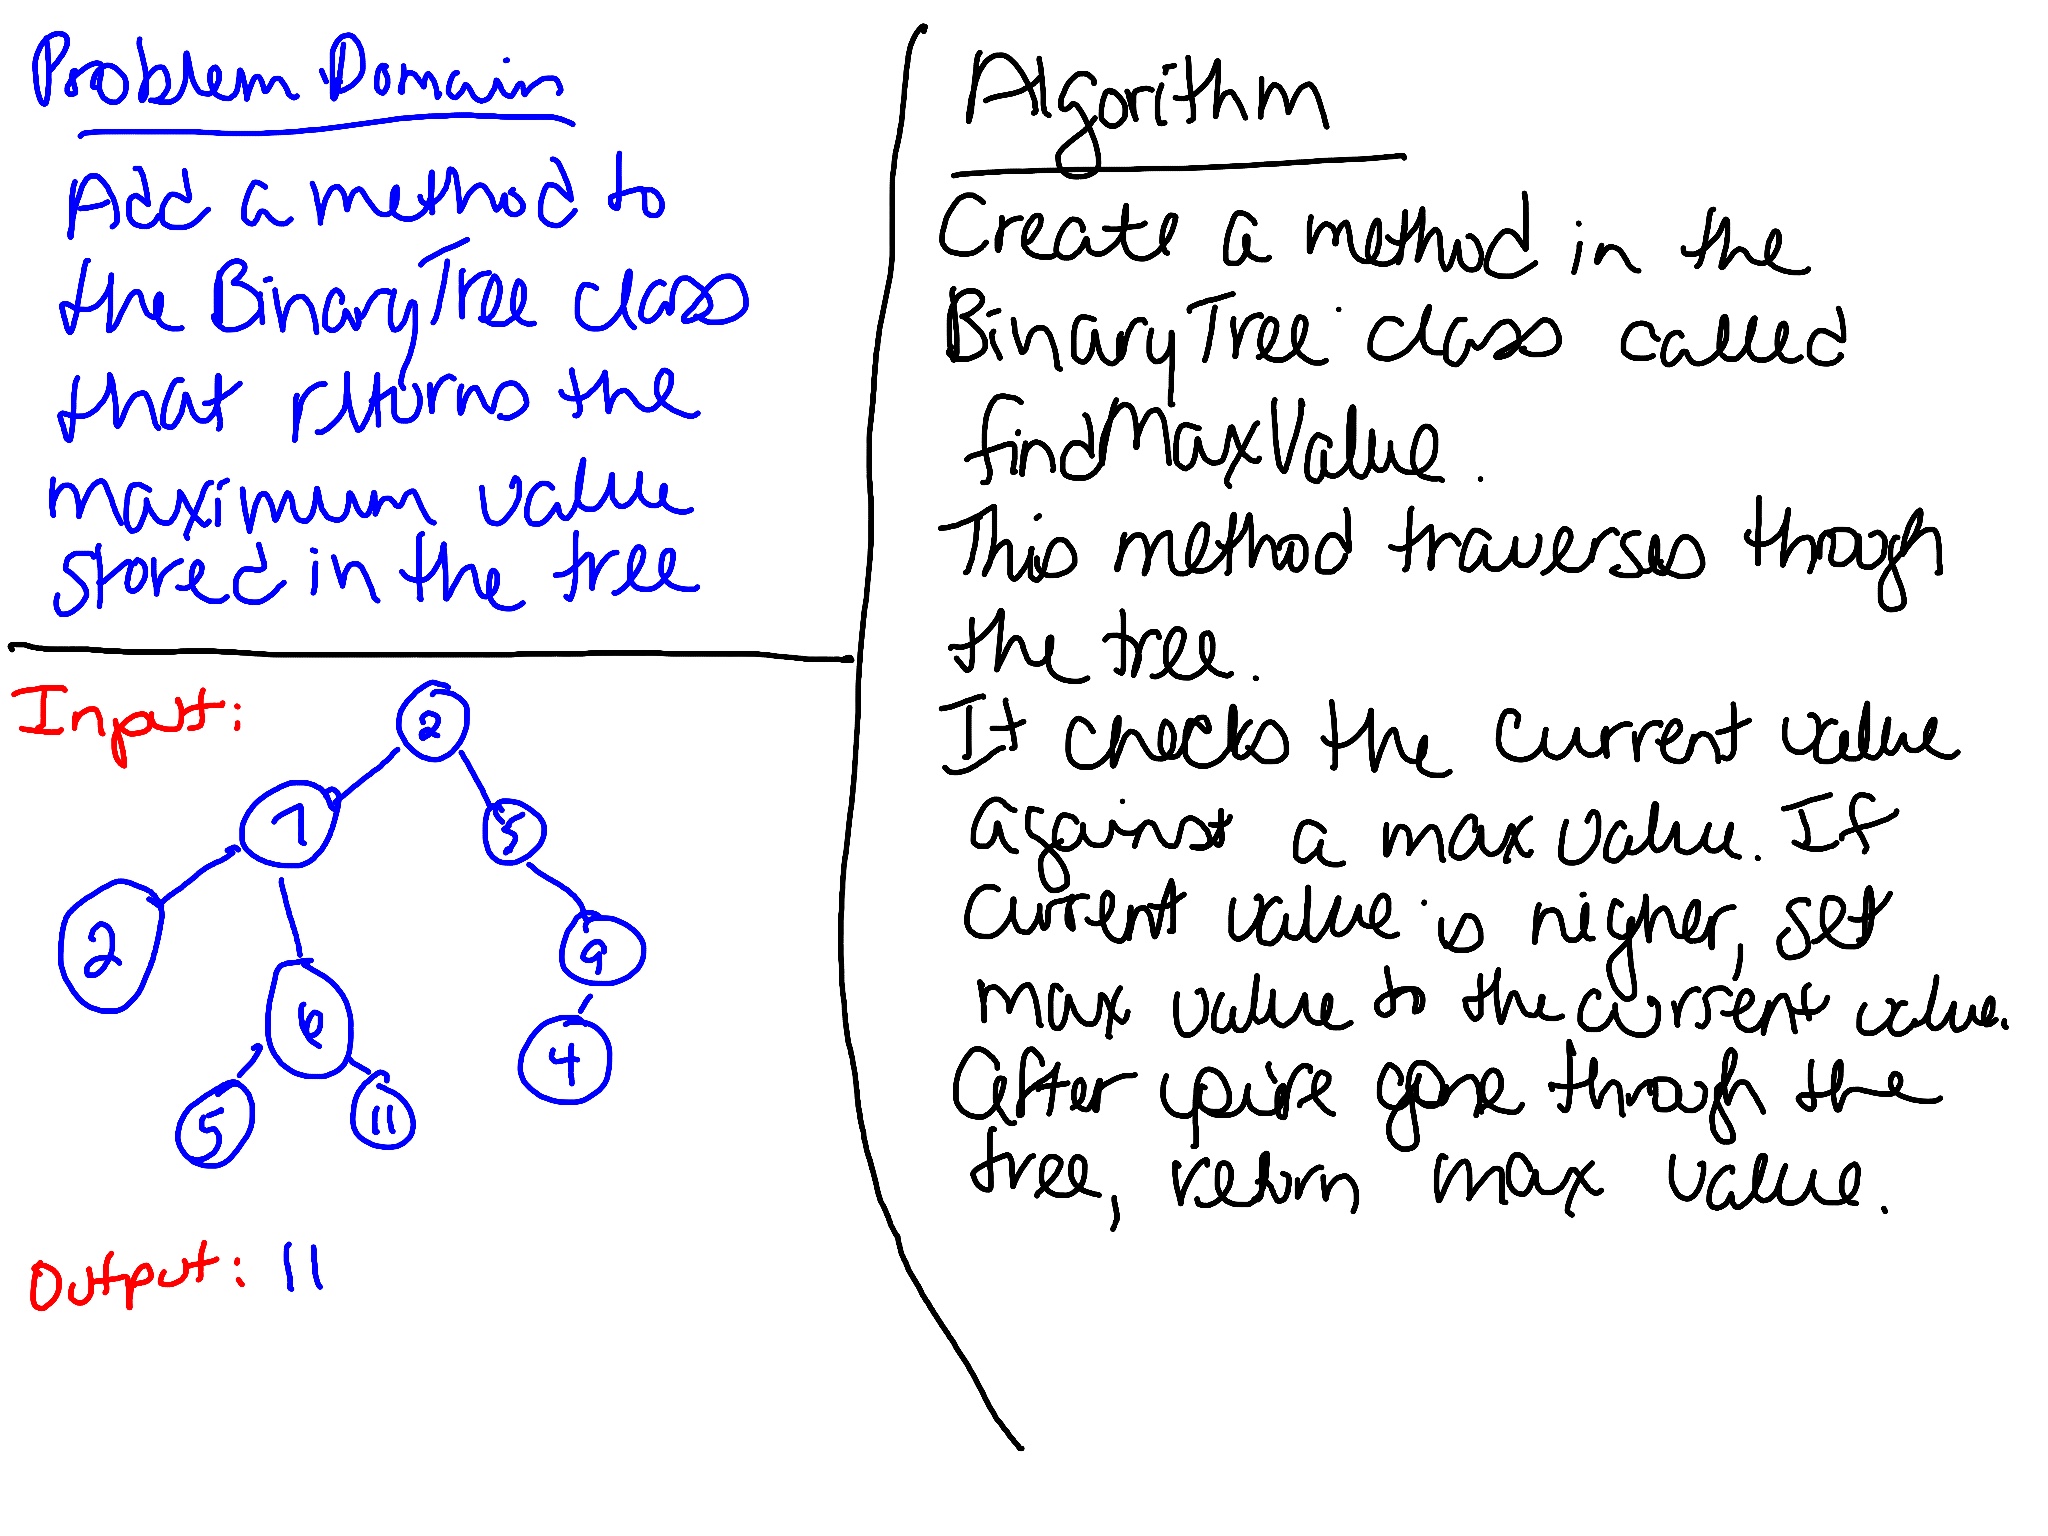 Problem Domain
Add a method to
the BinaryTree class
that returns the
maximum value
stored in the tree
Input:
2
7
5
2
9
6
4
5
11
Output: 11
Algorithm
Create a method in the
BinaryTree class called
findMaxValue.
This method traverses though
the tree.
It checks the current value
against a max value. If
current value is higher, set
max value to the current value.
After you're gone through the
tree, return max value.